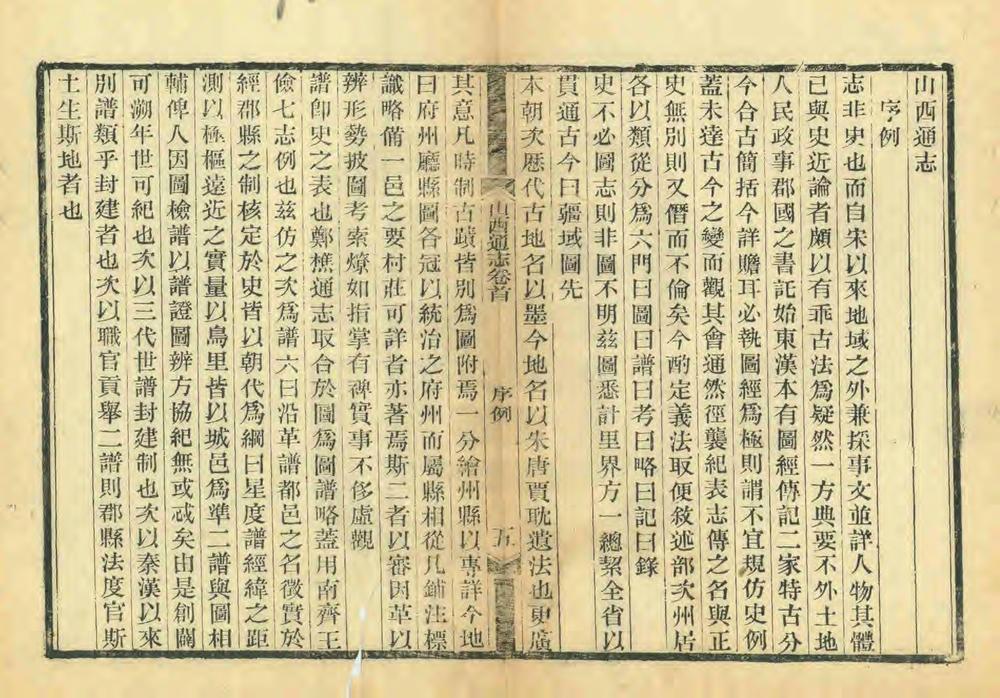 山西通志
序例
志非史也而自宋以來地域之外兼採事文並詳人物其體
已與史近論者頗以有乖古法爲疑然一方典要不外土地
人民政事郡國之書託始東漢本有圖經傳記二家特古分
今合古簡括今詳贍耳必執圖經爲極則謂不宜規仿史例
蓋未達古今之變而觀其會通然徑襲紀表志傳之名與正
史無別則又僭而不倫矣今酌定義法取便敘述部次州居
各以類從分爲六門曰圖曰譜曰考曰略曰記曰錄
史不必圖志則非圖不明兹圖悉計里界方一總挈全省以
貫通古今曰疆域圖先
本朝次歷代古地名以墨今地名以朱唐賈耽遺法也更廣
山西通志卷首
序例
五
其意凡時制古蹟皆別爲圖附焉一分繪州縣以專詳今地
曰府州廳縣圖各冠以統治之府州而屬縣相從凡鋪注標
識略備一邑之要村莊可詳者亦著焉斯二者以審因革以
辨形勢披圖考索燎如指掌有裨實事不侈虛觀
譜卽史之表也鄭樵通志取合於圖爲圖譜略蓋用南齊王
儉七志例也兹仿之次爲譜六曰沿革譜都邑之名徵實於
經郡縣之制核定於史皆以朝代爲綱曰星度譜經緯之距
測以極樞遠近之實量以鳥里皆以城邑爲準二譜與圖相
輔俾人因圖檢譜以譜證圖辨方協紀無或忒矣由是創闢
可溯年世可紀也次以三代世譜封建制也次以秦漢以來
別譜類乎封建者也次以職官貢舉二譜則郡縣法度官斯
土生斯地者也